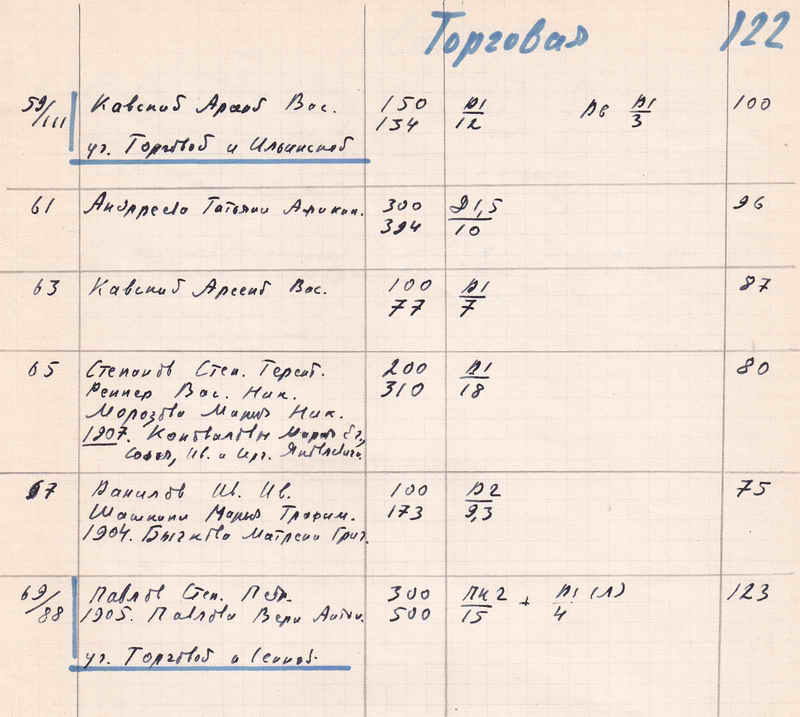 Торговая 122
59/III Кавский Арсей Вас. 150 Д1 Дв Д1 100
134 12 3
уг. Торговой и Ильинской
61 Андреева Татьяна 300 Д1,5 96
394 10
63 Кавский Арсений Вас. 100 Д1 87
77 7
65 Степанов Степ. Герас. 200 Д1 80
Реннер Вас. Ник. 310 18
Морозова Мария Ник.
1907. Коноваловы Мария Ег.,
Софья, Ив. и Яковлевичи.
67 Данилов Ив. Ив. 100 Д2 75
Шашкина Мария Трофим. 173 9,3
1904. Бычкова Матрена Григ.
69/88 Павлов Степ. Петр. 300 ПК2 + Д1 (Л) 123
1905. Павлова Вера Антон. 500 15 4
уг. Торговой и Сенной.